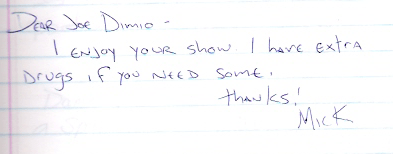 Dear Joe Dimio -
I enjoy your show. I have extra
drugs if you need some.
thanks!
Mick